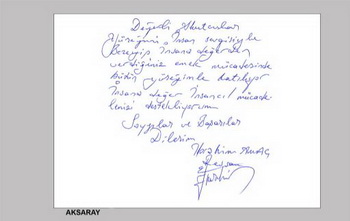 Değerli Okutcular
Yüreğinin İnsan sevgisiyle
Bezeyip İnsana değer
verdiğiniz emek mücadelesinde
bütün yüreğimle katılıyor
İnsana değer İnsancıl mücade-
lenizi destekliyorum
Saygılar ve Başarılar
Dilerim
İbrahim
AKSARAY